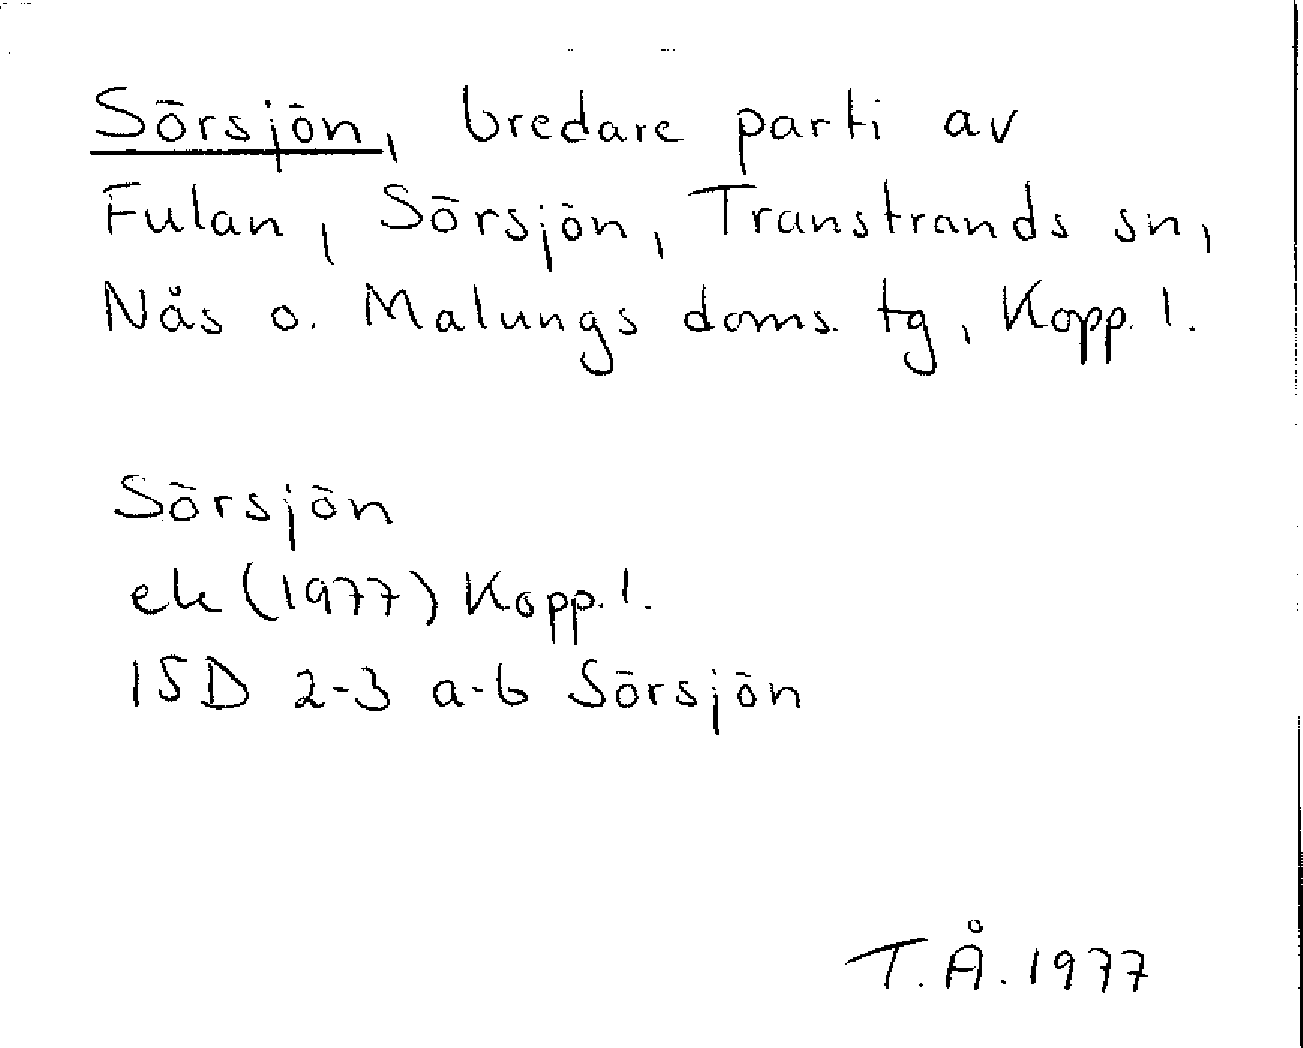 Sörsjön, bredare parti av
Fulan, Sörsjön, Transtrands sn,
Nås o. Malungs doms. tg, Kopp. l.
Sörsjön
ek (1977) Kopp. l.
15D 2-3 a-b Sörsjön
T. Å. 1977